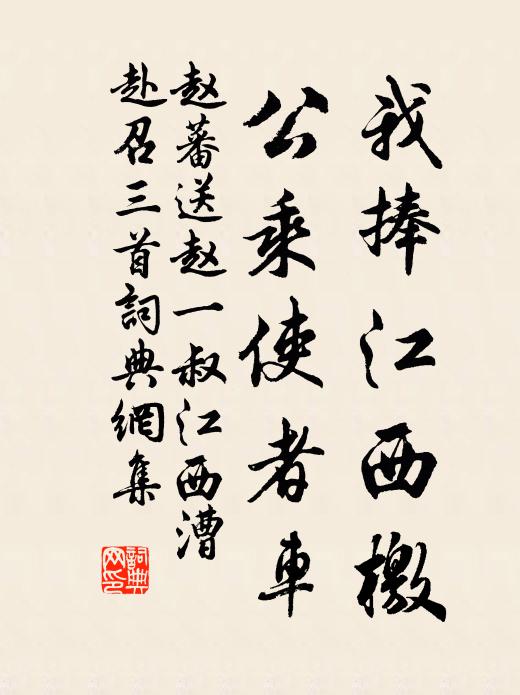 我捧江西檄
公乘使者車
赵蕃送赵一叔江西漕
赴召三首詞典網集
詞典网印